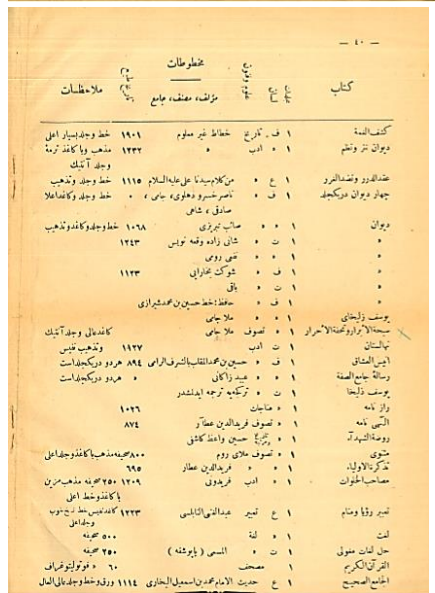 — ٤٠ —
مخطوطات
كتاب مجلدات لسان علوم وفنون مؤلف، مصنف، جامع تاريخ طبع ملاحظات
كشف الغمة ١ ف تاريخ خطاط غير معلوم ١٩٠١ خط وجلد بسيار اعلى
ديوان نثر ونظم ١ » ادب » ١٢٣٢ مذهب وباكاغذ ترمة
وجلد آنتيك
عقدالدرر ونضدالغرر ١ ع » من كلام سيدنا على عليه السلام ١١١٥ خط وجلد وتذهيب
چهار ديوان دريكجلد ١ ف » ناصر خسرو دهلوى، جامى، ٠ خط وجلد وكاغد اعلا
صادقى، شاهى
ديوان ١ » » صائب تبريزى ١٠٦٨ خط وجلد وكاغد وتذهيب
» ١ ت » شانى زاده وقعه نويس ١٢٤٣
» ١ » » نفعى رومى
» ١ ف » شوكت بخارايى ١١٢٣
» ١ ت » باقى
» ١ ف » حافظ؛ خط حسين بن محمد شيرازى
يوسف زليخاى ١ » » ملا جامى
سبحة الابرار وتحفة الاحرار ١ » تصوف ملا جامى كاغد عالى وجلد آنتيك
نهالستان ١ ت ادب ١٩٢٧ وتذهيب نفيس
انيس العشاق ١ ف » حسين بن محمد الملقب بالشرف الرامى ٨٩٤ هر دو دريكجلد است
رسالۀ جامع الصفة ١ » » عبيد زاكانى » هر دو دريكجلد است
يوسف زليخا ١ ت » تركيه ترجمه ايدلشدر
راز نامه ١ » مناجات ١٠٢٦
الهى نامه ١ » تصوف فريدالدين عطار ٨٧٤
روضة الشهداء ١ » حسين واعظ كاشفى
مثنوى ١ » تصوف ملاى روم ٨٠٠ صحيفه مذهب باكاغذ وجلد اعلى
تذكرة الاولياء ١ » » فريدالدين عطار ٦٩٥
مصاحب الخلوات ١ » ادب فريدونى ١٢٠٩ ٢٥٠ صحيفه مذهب مزين
باكاغذ وخط اعلى
تعبير رؤيا ومنام ١ ع تعبير عبدالغنى النابلسى ١٢٢٣ كاغد نفيس خط نسخ خوب
وجلد اعلى
لغت ١ » لغة ٥٠٠ صحيفه
حل لغات مغولى ١ ت » المسمى (بايوشقه) ٢٥٠ صحيفه
القرآن الكريم ١ مصحف ٦٠ » فوتوليتوغراف
الجامع الصحيح ١ ع حديث الامام محمد بن اسمعيل البخارى ١١١٤ ورق وخط وجلد عالى العال